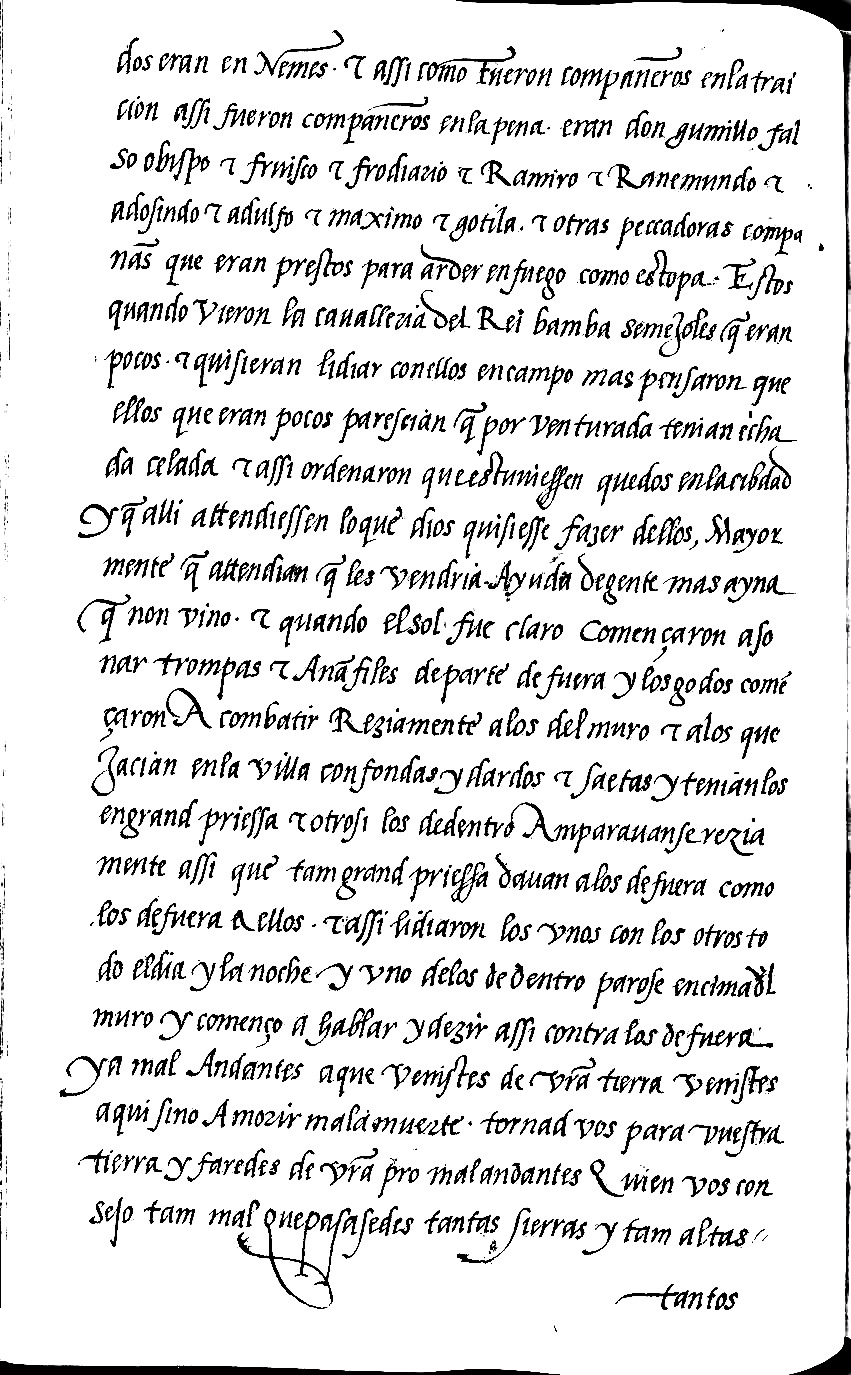 dos eran en Nemes · ⁊ assi como fueron compañeros enla trai
cion assi fueron compañeros enla pena · eran don gumillo fal
so obispo ⁊ fruisco ⁊ frodiario ⁊ Ramiro ⁊ Ranemundo ⁊
adosindo ⁊ adulfo ⁊ maximo ⁊ gotila · ⁊ otras peccadoras compa
nãs que eran prestos para arder en fuego como estopa · Estos
quando vieron la cauallezia del Rei bamba semejoles q̃ eran
pocos · ⁊ quisieran lidiar conellos encampo mas pensaron que
ellos que eran pocos parescian q̃ por venturada tenian echa
da celada ⁊ assi ordenaron que estuuiessen quedos enla cibdad
y q̃ alli attendiessen lo que dios quisiesse fazer dellos, Mayor
mente q̃ attendian q̃ les vendria Ayuda de gente mas ayna
q̃ non vino · ⁊ quando el sol · fue claro Començaron a so
nar trompas ⁊ Anãfiles de parte de fuera y los godos comẽ
çaron A combatir Reziamente alos del muro ⁊ alos que
Jacian enla villa con fondas y dardos ⁊ saetas y tenian los
engrand priessa ⁊ otrosi los dedentro Amparauanse rezia
mente assi que tam grand priessa dauan alos defuera como
los defuera a ellos · ⁊ assi lidiaron los vnos con los otros to
do eldia y la noche y vno delos de dentro parose encima dl
muro y començo a hablar y dezir assi contra los defuera
ya mal Andantes aque venistes de vr̃a tierra venistes
aqui sino A morir mala muerte · tornad vos para vuestra
tierra y faredes de vr̃a pro malandantes Quien vos con
sejo tam mal que pasasedes tantas sierras y tam altas
tantos